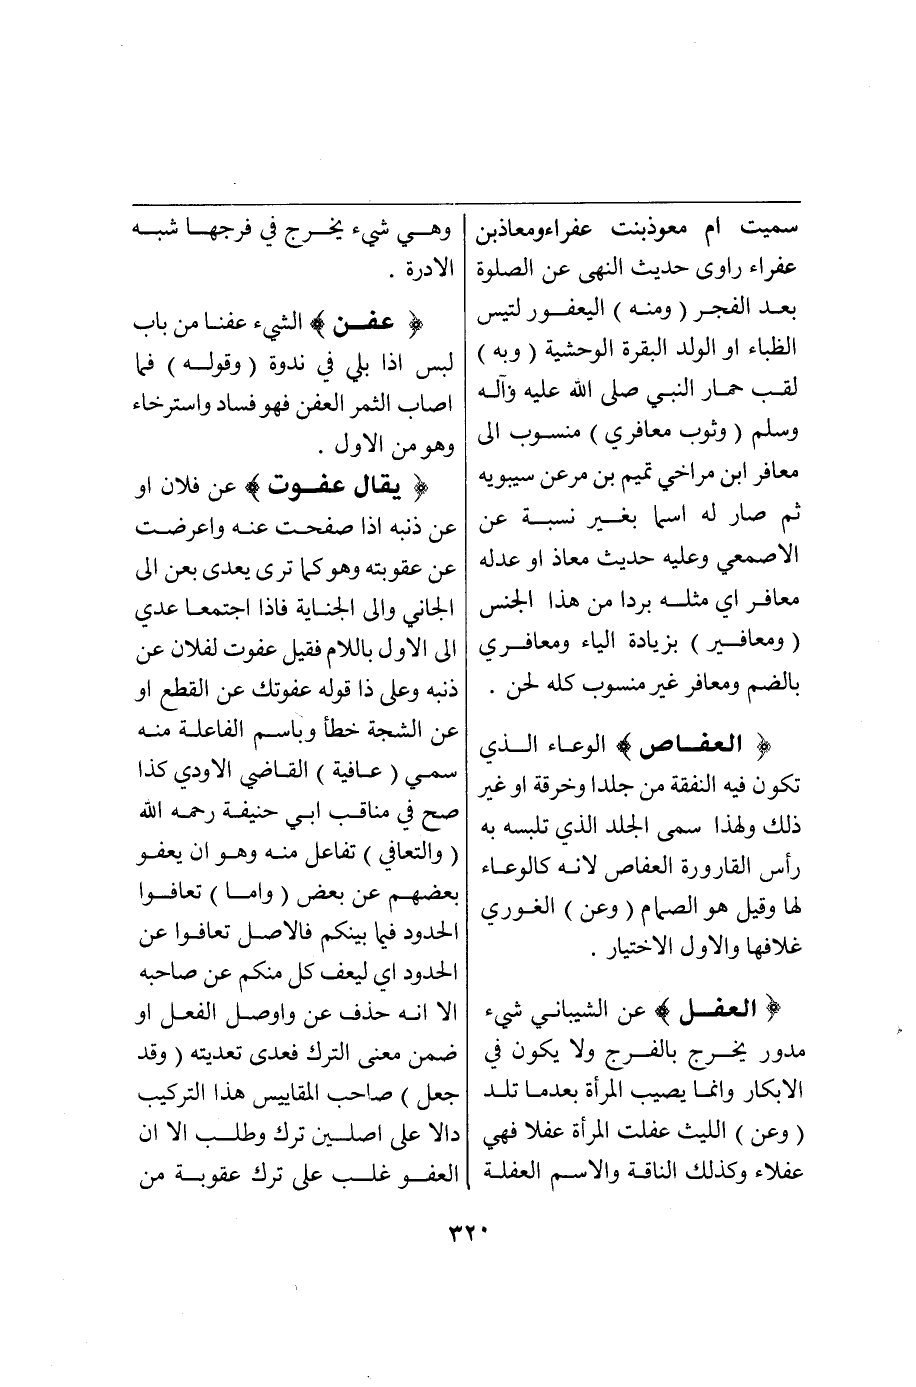 سميت ام معوذبنت عفراءومعاذبن
عفراء راوى حديث النهى عن الصلوة
بعد الفجر ( ومنه ) اليعفور لتيس
الظباء او الولد البقرة الوحشية ( وبه )
لقب حمار النبي صلى الله عليه وآله
وسلم ( وثوب معافري ) منسوب الى
معافر ابن مراخي تميم بن مرعن سيبويه
ثم صار له اسما بغير نسبة عن
الاصمعي وعليه حديث معاذ او عدله
معافر اي مثله بردا من هذا الجنس
( ومعافير ) بزيادة الياء ومعافري
بالضم ومعافر غير منسوب كله لحن .
﴿ العفاص ﴾ الوعاء الذي
تكون فيه النفقة من جلدا وخرقة او غير
ذلك ولهذا سمى الجلد الذي تلبسه به
رأس القارورة العفاص لانه كالوعاء
لها وقيل هو الصمام ( وعن ) الغوري
غلافها والاول الاختيار .
﴿ العفل ﴾ عن الشيباني شيء
مدور يخرج بالفرج ولا يكون في
الابكار وانما يصيب المرأة بعدما تلد
( وعن ) الليث عفلت المرأة عفلا فهي
عفلاء وكذلك الناقة والاسم العفلة
وهي شيء يخرج في فرجها شبه
الادرة .
﴿ عفن ﴾ الشيء عفنا من باب
لبس اذا بلي في ندوة ( وقوله ) فما
اصاب الثمر العفن فهو فساد واسترخاء
وهو من الاول .
﴿ يقال عفوت ﴾ عن فلان او
عن ذنبه اذا صفحت عنه واعرضت
عن عقوبته وهو كما ترى يعدى بعن الى
الجاني والى الجناية فاذا اجتمعا عدي
الى الاول باللام فقيل عفوت لفلان عن
ذنبه وعلى ذا قوله عفوتك عن القطع او
عن الشجة خطأ وباسم الفاعلة منه
سمي ( عافية ) القاضي الاودي كذا
صح في مناقب ابي حنيفة رحمه الله
( والتعافي ) تفاعل منه وهو ان يعفو
بعضهم عن بعض ( واما ) تعافوا
الحدود فيما بينكم فالاصل تعافوا عن
الحدود اي ليعف كل منكم عن صاحبه
الا انه حذف عن واوصل الفعل او
ضمن معنى الترك فعدى تعديته ( وقد
جعل ) صاحب المقاييس هذا التركيب
دالا على اصلين ترك وطلب الا ان
العفو غلب على ترك عقوبة من
٣٢٠